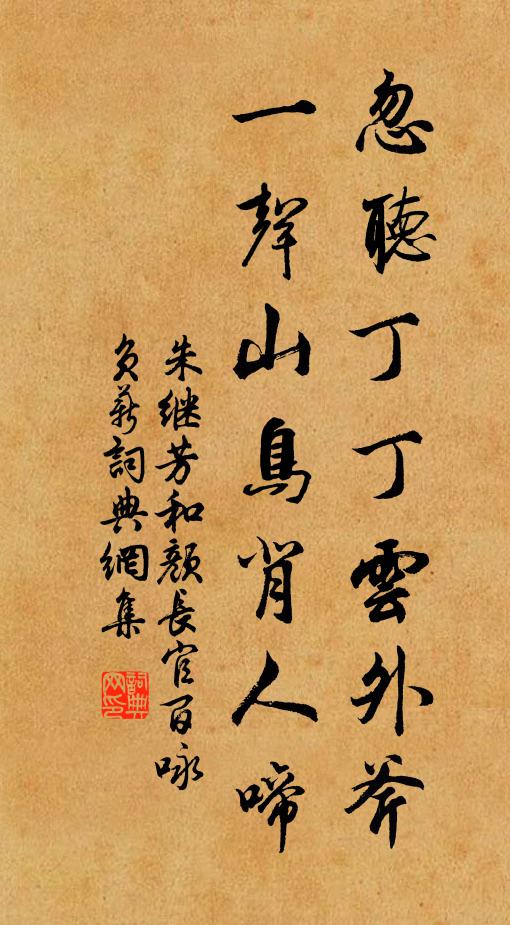 忽聽丁丁雲外斧
一聲山鳥背人啼
朱继芳和顏長官百咏
負薪詞典網集
詞典网印